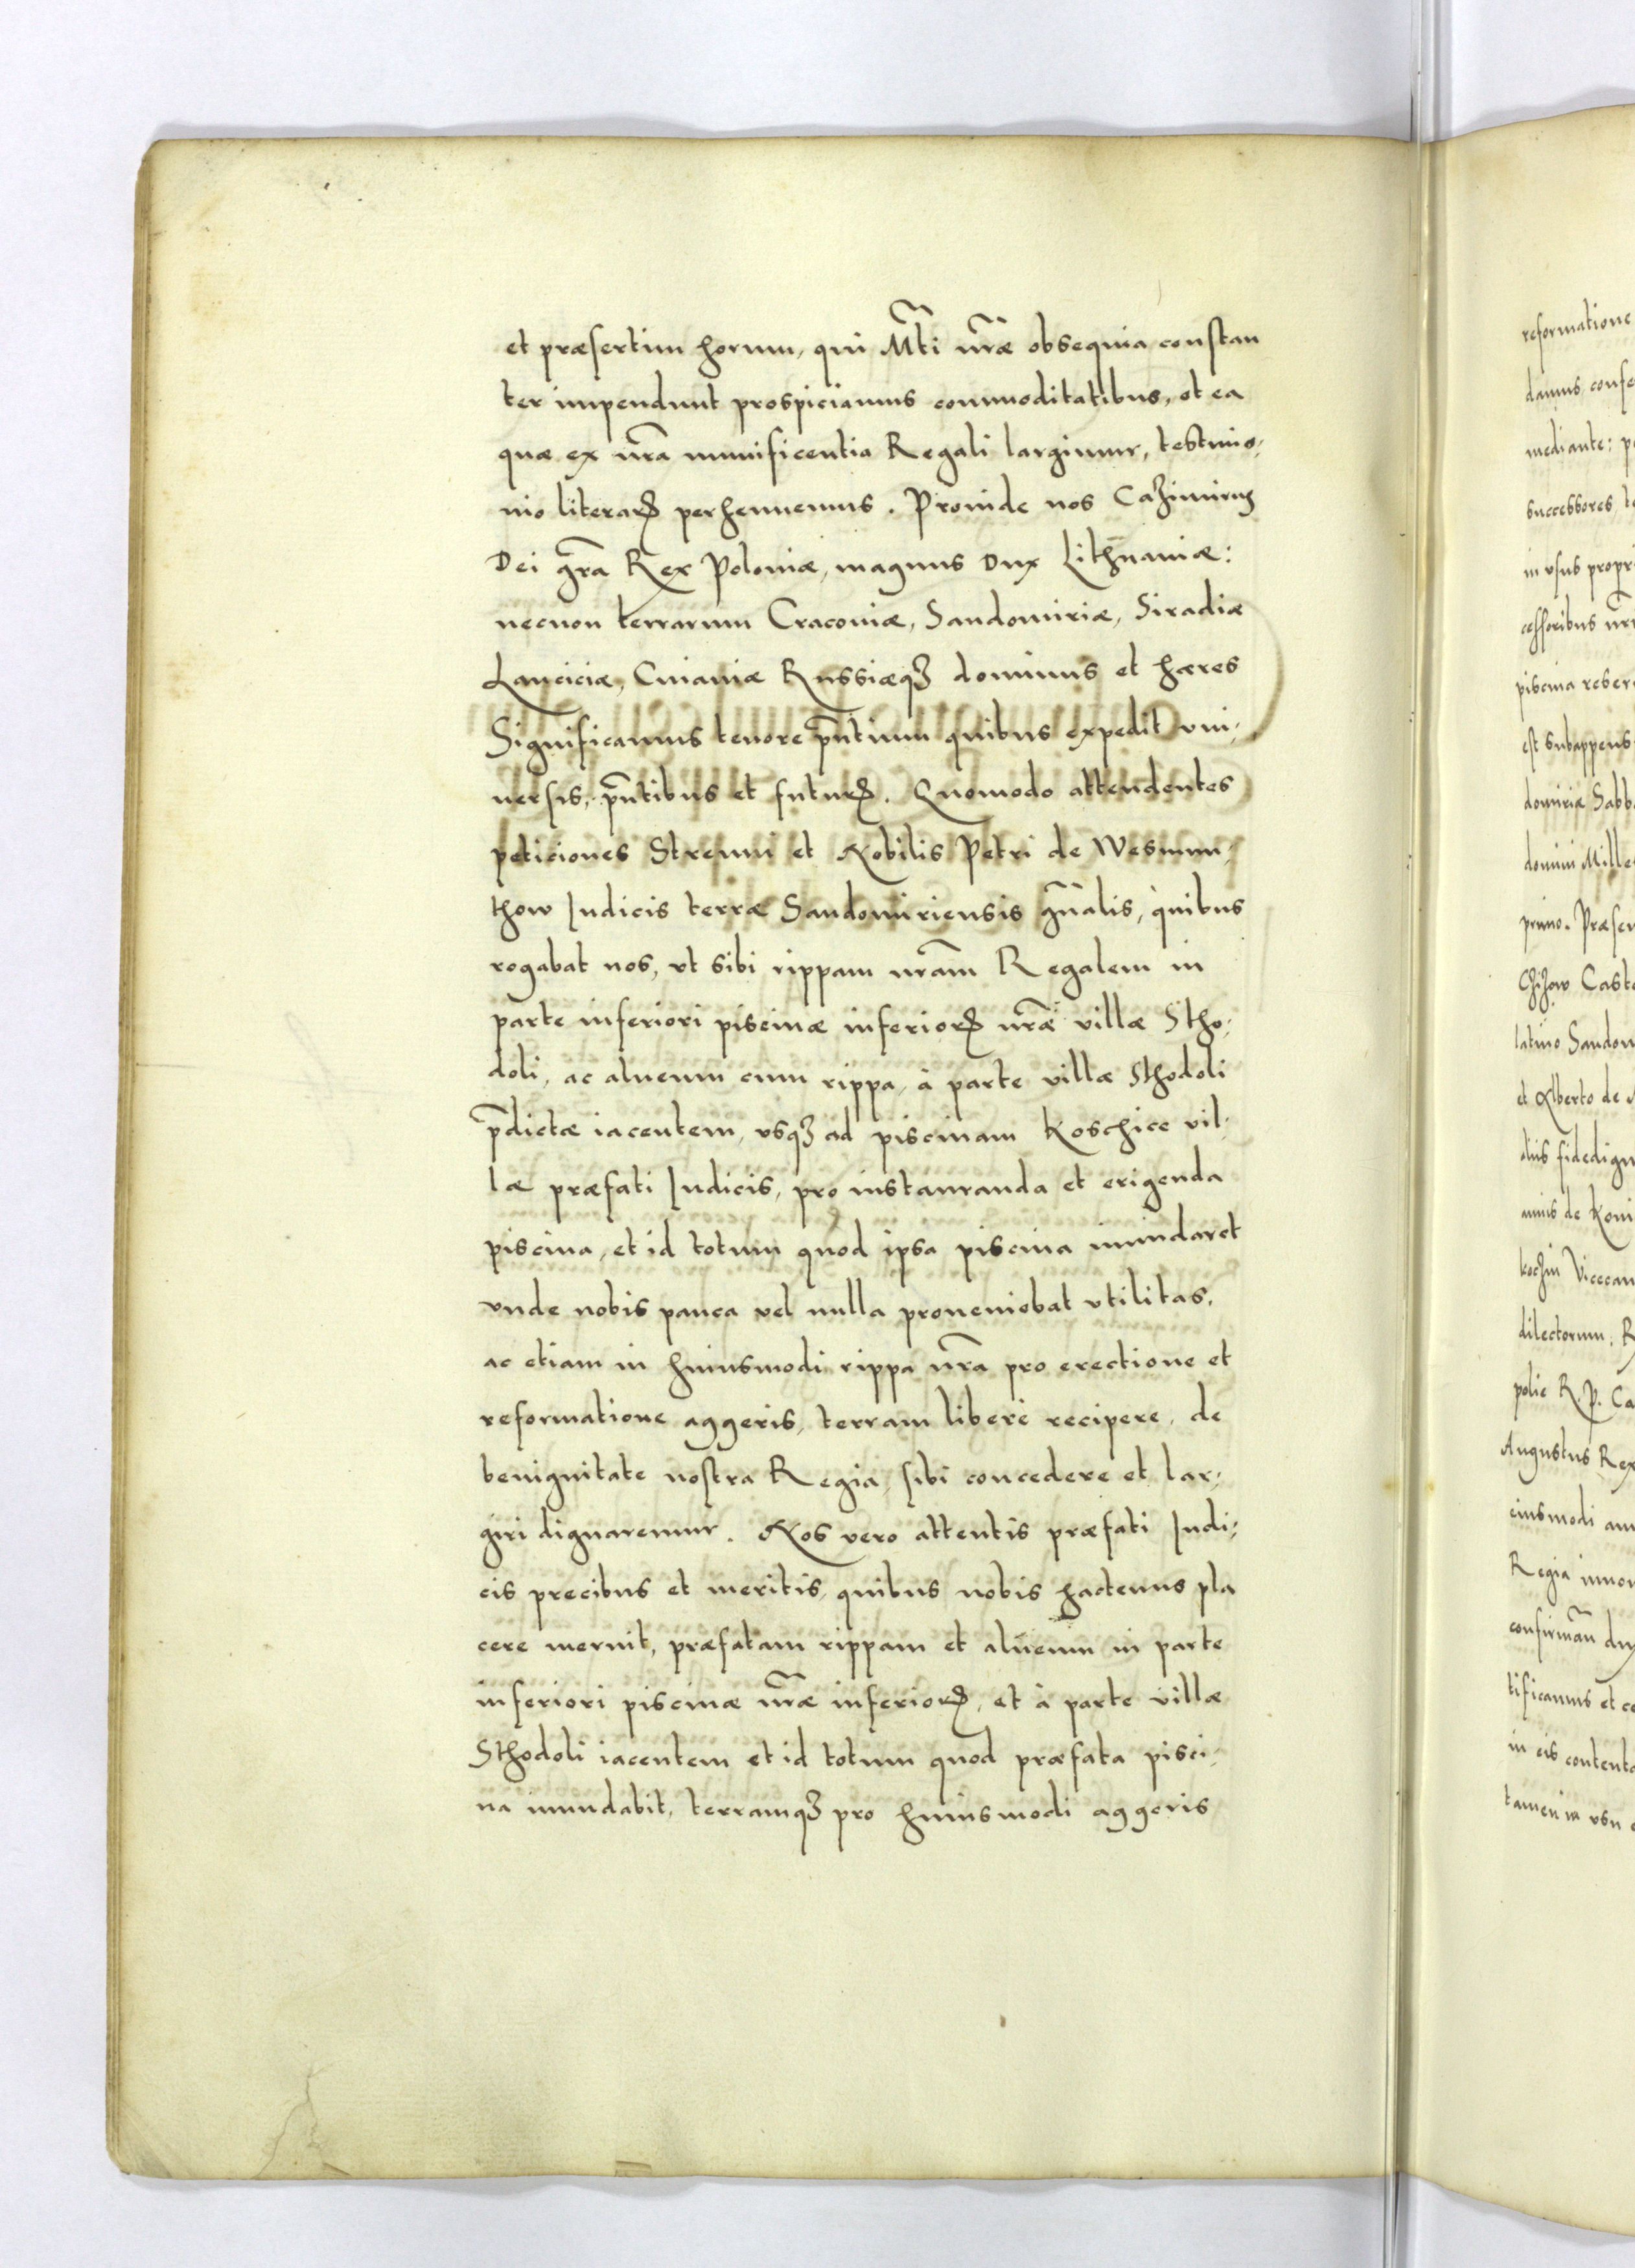 et præsertim horum, qui M̃ti nr̃æ obsequia constan
ter impendunt prospiciamus commoditatibus, et ea
quæ ex nr̃a munificentia Regali largimur, testimo,
nio literarꝝ perhennemus. Proinde nos Cazimirus
Dei gr̃a Rex Poloniæ, magnus Dux Lithuaniæ:
necnon terrarum Cracoviæ, Sandomiriæ, Siradiæ
Lanciciæ, Cuiaviæ Russiæqꝫ dominus et hæres
Significamus tenore pñtium quibus expedit vni,
uersis, pñtibus et futurꝝ. Quomodo attendentes
peticiones Strenui et Nobilis Petri de Wesmun,
thow Judicis terræ Sandomiriensis gñalis, quibus
rogabat nos, vt sibi rippam nr̃am Regalem in
parte inferiori piscinæ inferiorꝝ nr̃æ villæ Stho,
doli, ac alueum cum rippa, à parte villæ Sthodoli
p̃dictæ iacentem, vsqꝫ ad piscinam Koschice vil,
læ præfati Judicis, pro instauranda et erigenda
piscina, et id totum quod ipsa piscina inundaret
vnde nobis pauca vel nulla proueniebat vtilitas,
ac etiam in huiusmodi rippa nr̃a pro erectione et
reformatione aggeris, terram liberè recipere, de
benignitate nostra Regia, sibi concedere et lar,
giri dignaremur. Nos vero attentis præfati Judi,
cis precibus et meritis, quibus nobis hactenus pla
cere meruit, præfatam rippam et alueum in parte
inferiori piscinæ nr̃æ inferiorꝝ, et à parte villæ
Sthodoli iacentem et id totum quod præfata pisci,
na inundabit, terramqꝫ pro huiusmodi aggeris
reformatione
damus, confe
mediante: p
successores t
in vsus propri
cessoribus nr̃i
piscina reser
est subappens
domiriæ Sabb
domini Mille
primo. Præsen
Chizow Cast
latino Sandom
et Alberto de
aliis fidedign
annis de Koni
kochin Vicecan
dilectorum. R
polie R. P. Ca
Augustus Rex
eiusmodi
Regia
confirmañ
tificamus et co
in eis contenta
tamen in vsu